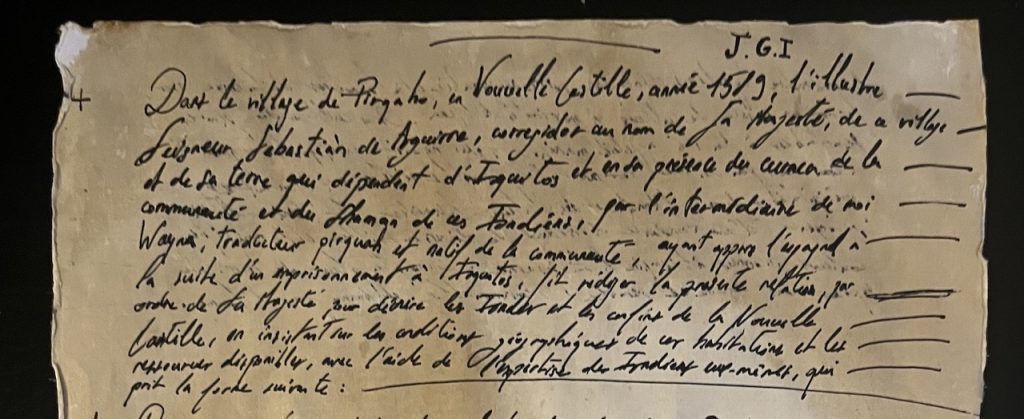 J.G.I
Dans le village de Pirgaho, en Nouvelle Castille, année 1589, l'illustre
Seigneur Sebastián de Aguirre, corregidor au nom de Sa Majesté, de ce village
et de sa terre qui dépendent d'Iquitos et en sa présence du curaca de la
communauté et du Shaman de ces Indiens, par l'intermédiaire de moi
Wayna, traducteur pirquah et natif de la communauté, ayant appris l'espagnol à
la suite d'un emprisonnement à Iquitos, fit rédiger la présente relation, par
ordre de Sa Majesté, pour décrire les Indes et les confins de la Nouvelle
Castille, en insistant sur les conditions géographiques de ces habitations et les
ressources disponibles, avec l'aide de l'expertise des Indiens eux-mêmes, qui
prit la forme suivante :